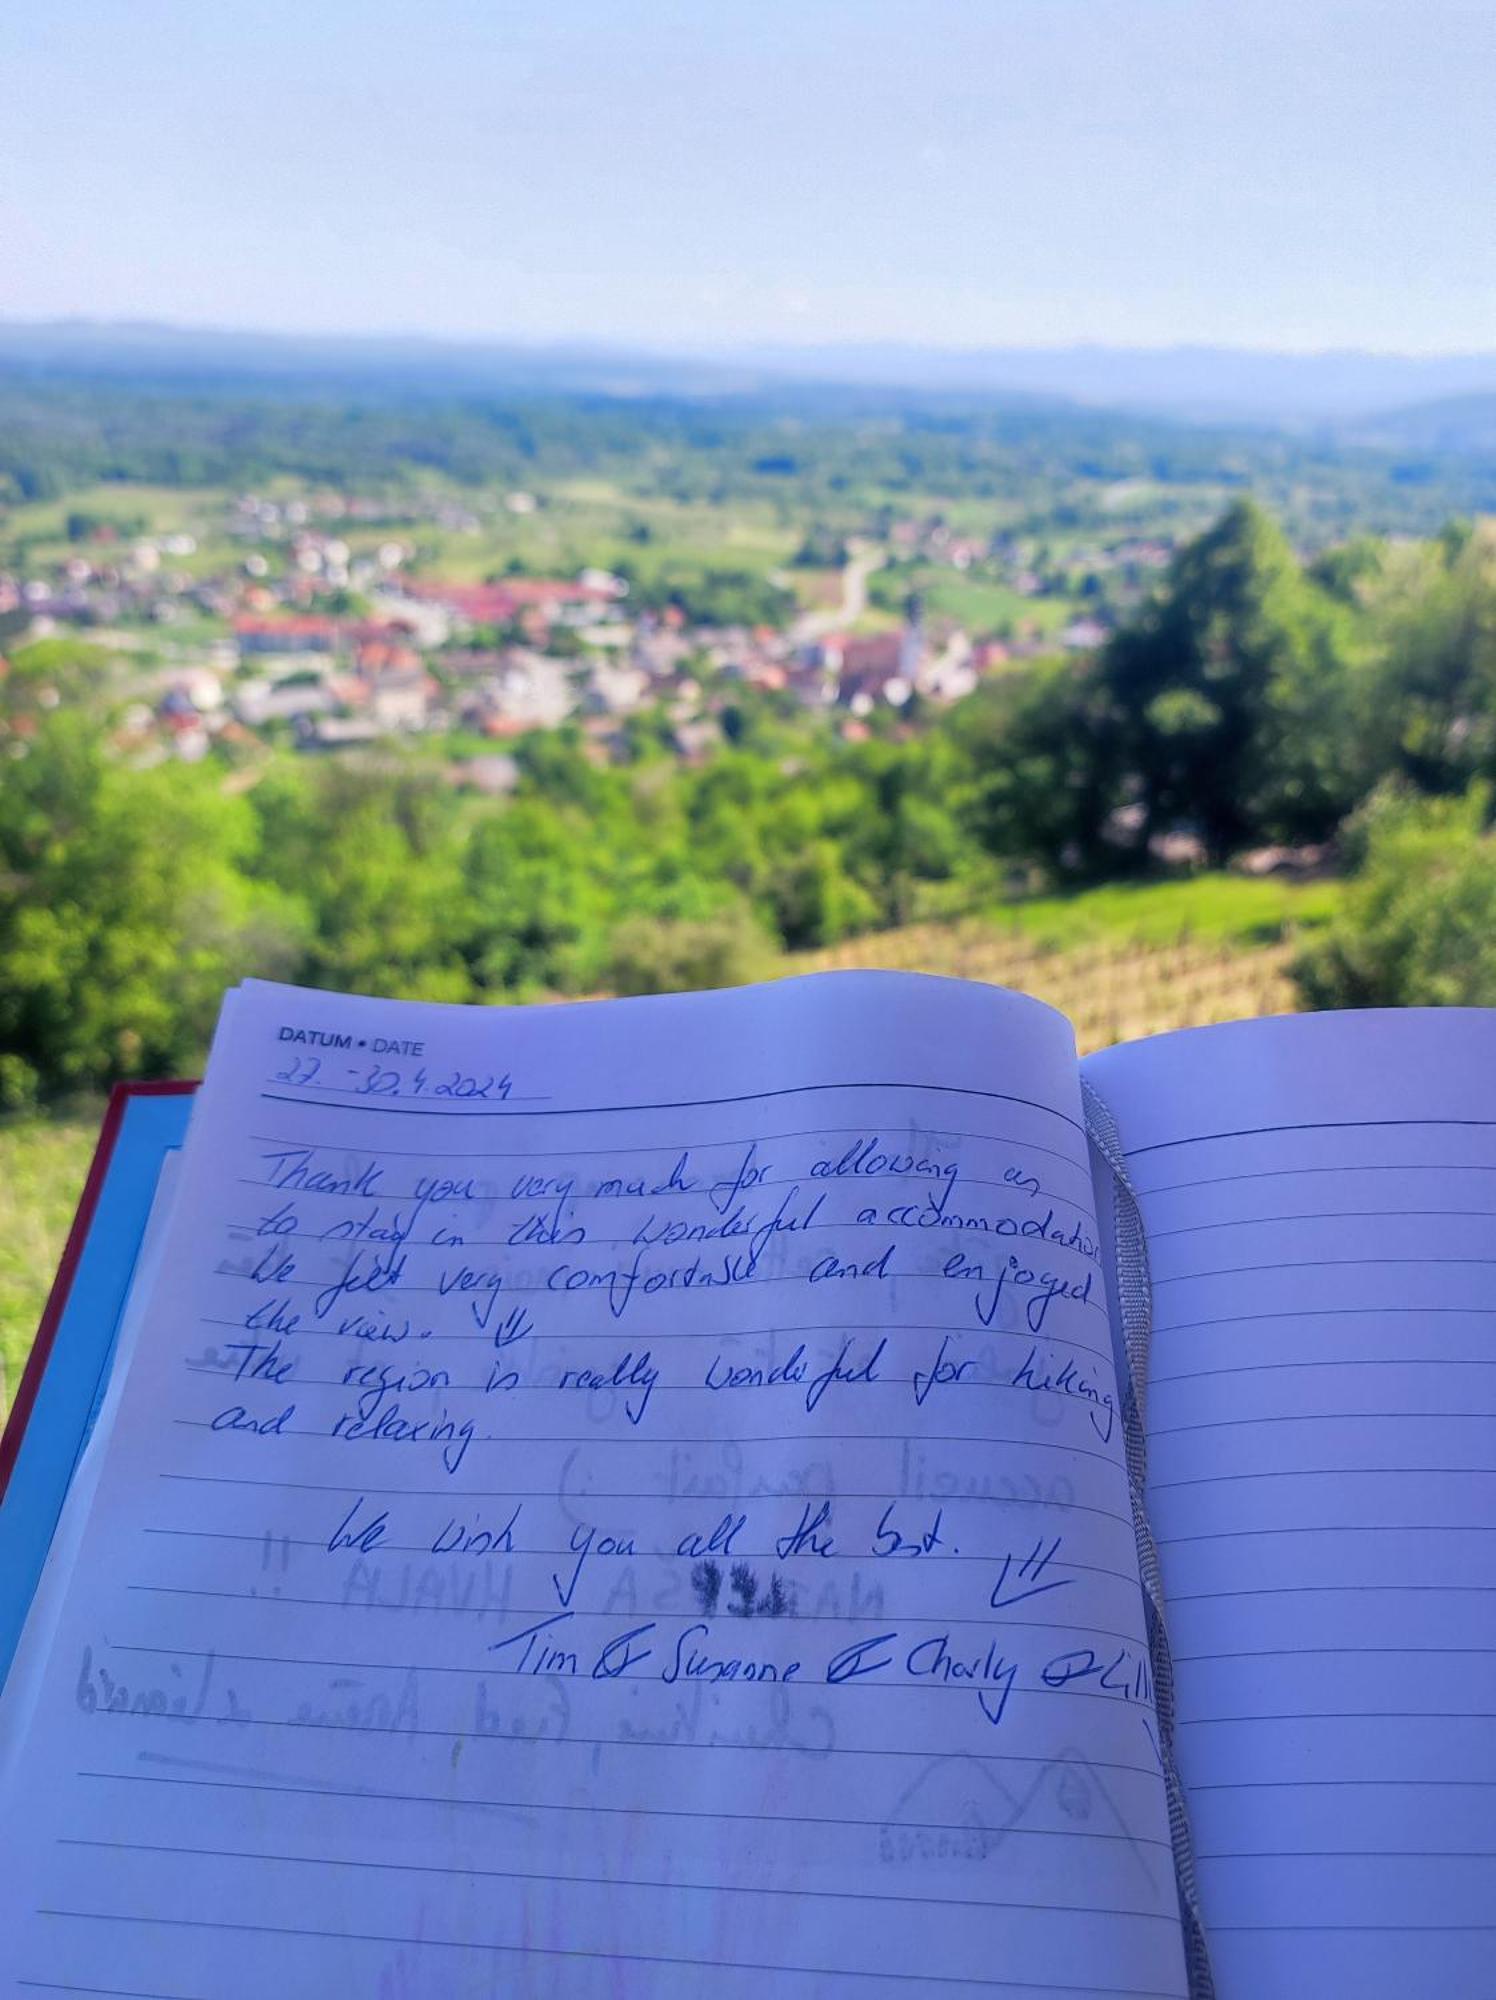 DATUM • DATE
27. - 30.4.2024
Thank you very much for allowing us
to stay in this wonderful accommodation
We felt very comfortable and enjoyed
the view.
The region is really wonderful for hiking
and relaxing.
We wish you all the best.
Tim & Susanne & Charly & Lilli
accueil parfait :)
HVALA !!